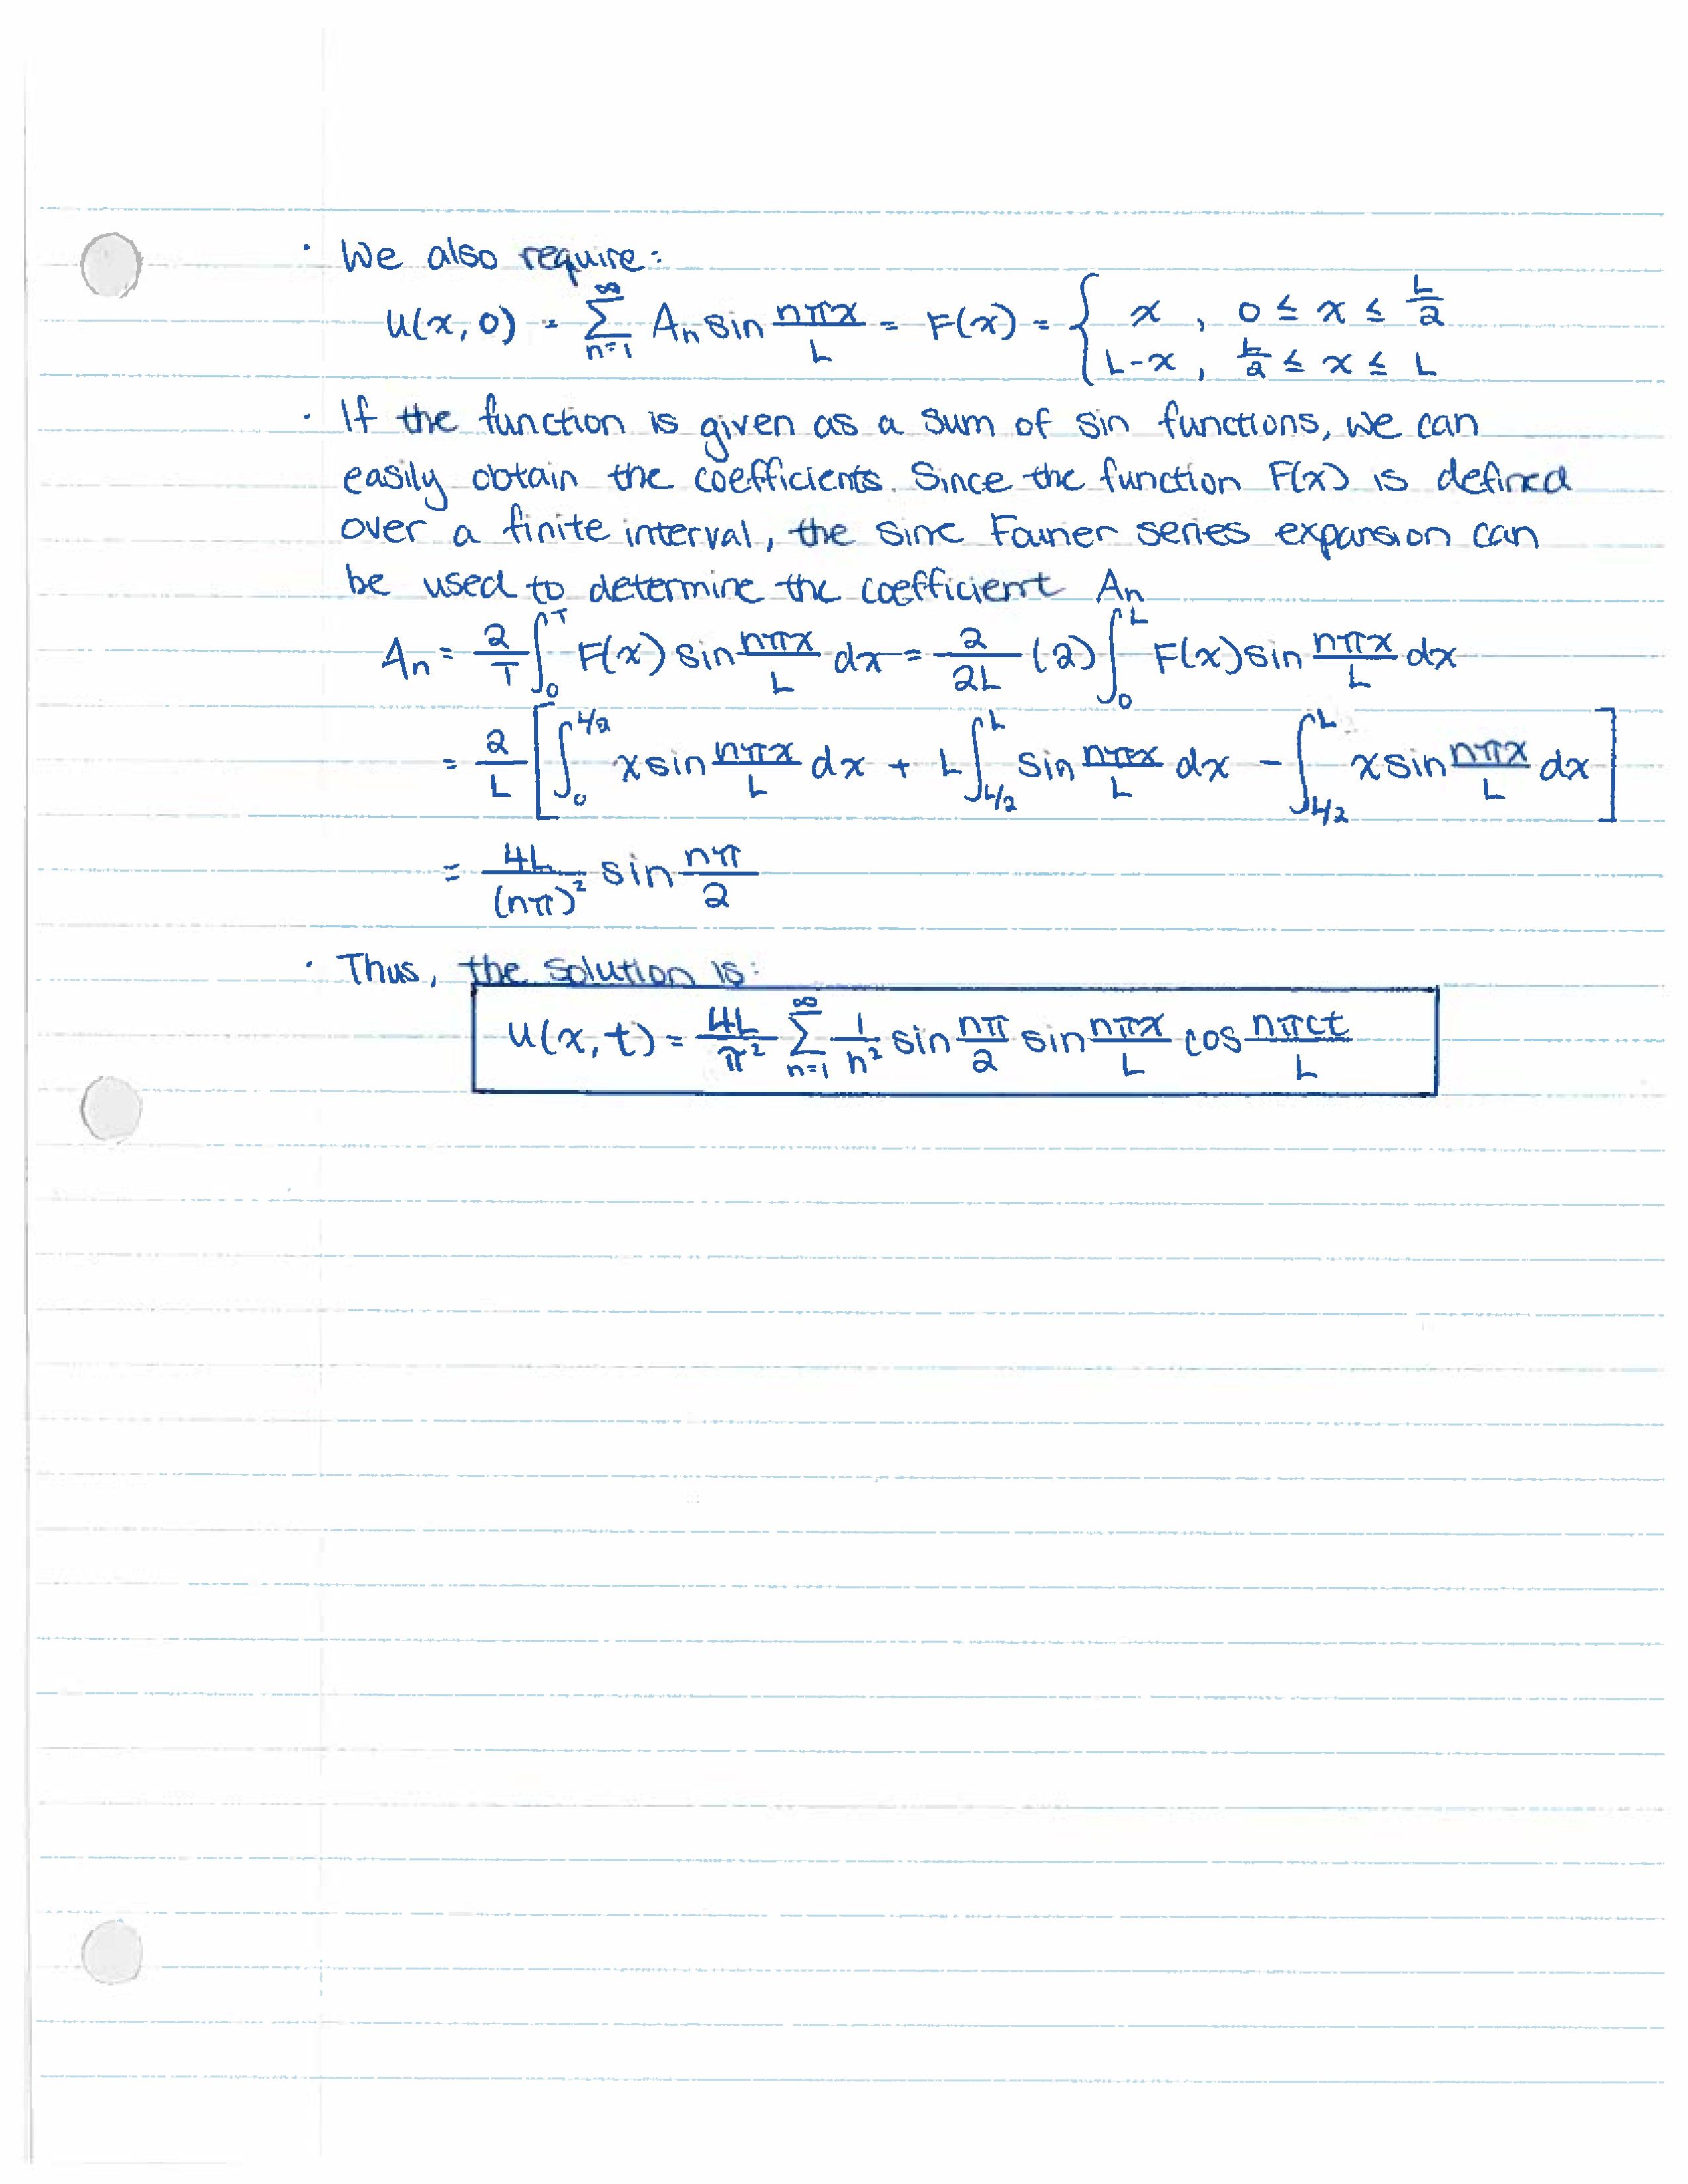 · We also require:
u(x, 0) = ∑_{n=1}^{∞} A_n sin nπx/L = F(x) = { x , 0 ≤ x ≤ L/2 ; L-x , L/2 ≤ x ≤ L
· If the function is given as a sum of sin functions, we can
easily obtain the coefficients. Since the function F(x) is defined
over a finite interval, the sine Fourier series expansion can
be used to determine the coefficient A_n
A_n = 2/T ∫_0^T F(x) sin nπx/L dx = 2/2L (2) ∫_0^L F(x) sin nπx/L dx
= 2/L [ ∫_0^{L/2} x sin nπx/L dx + L ∫_{L/2}^L sin nπx/L dx - ∫_{L/2}^L x sin nπx/L dx ]
= 4L/(nπ)² sin nπ/2
· Thus, the solution is:
u(x, t) = 4L/π² ∑_{n=1}^{∞} 1/n² sin nπ/2 sin nπx/L cos nπct/L